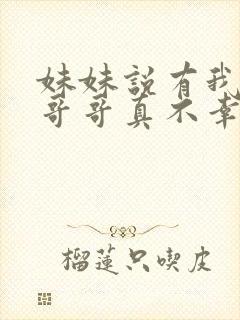 妹妹説有我
哥哥真不幸
榴蓮只喫皮